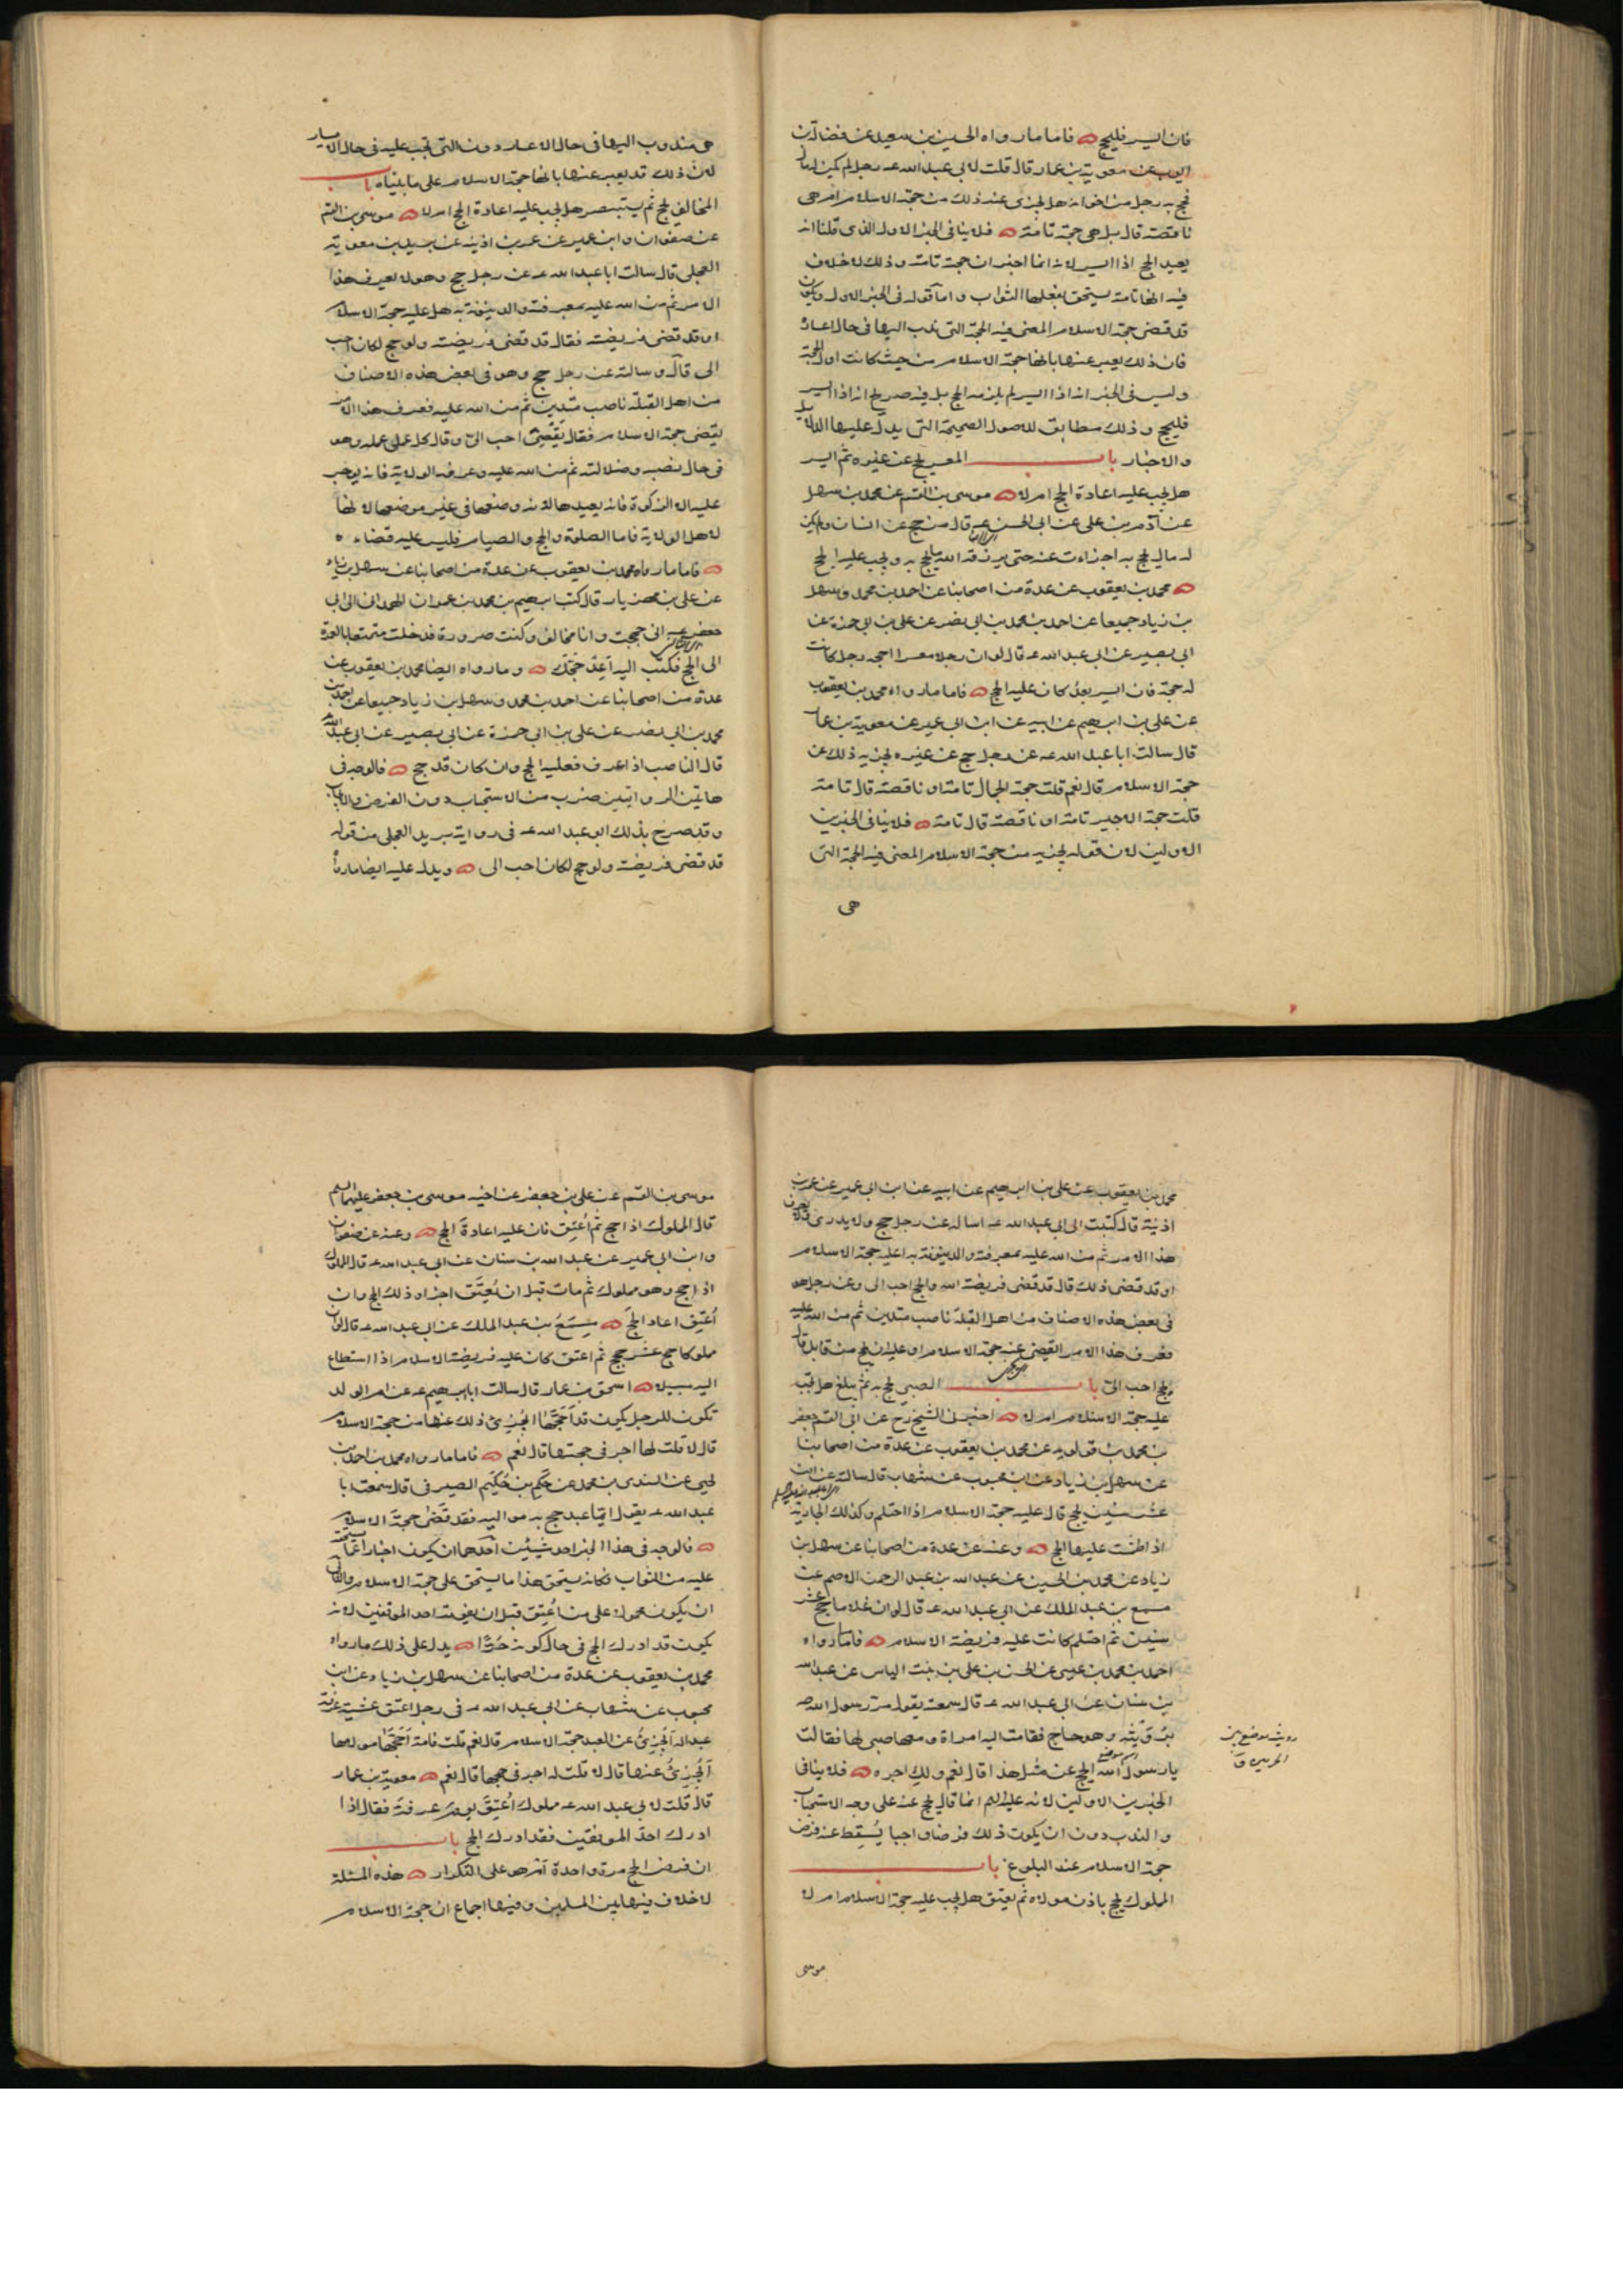 فان ايسر فليحج فاما ما رواه الحسين بن سعيد عن فضالة بن
ايوب عن معوية بن عمار قال قلت لابي عبد الله عـ رجل لم يكن له مال
فحج به رجل من اخوانه هل يجزي عنه ذلك من حجة الاسلام ام هي
ناقصة قال بل هي حجة تامة فلا ينافي الخبر الاول الذي قلنا انه
يعيد الحج اذا ايسر لانه انما اخبر ان حجته تامة وذلك لا خلاف
فيه انها تامة يستحق بفعلها الثواب واما قوله في الخبر الاول ويكون
قد قضى حجة الاسلام المعنى فيه الحجة التي ندب اليها في حال اعساره
فان ذلك يعبر عنها بانها حجة الاسلام من حيث كانت اول الحجة
وليس في الخبر انه اذا ايسر لم يلزمه الحج بل فيه صريح انه اذا ايسر
فليحج وذلك مطابق للاصول الصحيحة التي يدل عليها الدلايل
والاخبار باب المعسر يحج عن غيره ثم ايسر
هل يجب عليه اعادة الحج ام لا موسى بن القسم عن محمد بن سهل
عن آدم بن علي عن ابي الحسن عـ قال من حج عن انسان ولم يكن
له مال يحج به اجزاءت عنه حتى يرزقه الله ما يحج به ويجب عليه الحج
محمد بن يعقوب عن عدة من اصحابنا عن احمد بن محمد وسهل
بن زياد جميعا عن احمد بن محمد بن ابي نصر عن علي بن ابي حمزة عن
ابي بصير عن ابي عبد الله عـ قال لو ان رجلا معسرا احجه رجل كانت
له حجة فان ايسر بعد كان عليه الحج فاما ما رواه محمد بن يعقوب
عن علي بن ابرهيم عن ابيه عن ابن ابي عمير عن معوية بن عمار
قال سالت ابا عبد الله عـ عن رجل حج عن غيره يجزيه ذلك عن
حجة الاسلام قال نعم قلت حجة الجمال تامة او ناقصة قال تامة
قلت حجة الاجير تامة او ناقصة قال تامة فلا ينافي الخبرين
الاولين لان قوله يجزيه من حجة الاسلام المعنى فيه الحجة التي
هي
هي مندوب اليها في حال الاعسار دون التي تجب عليه في حال الايسار
لان ذلك قد يعبر عنها بانها حجة الاسلام على ما بيناه باب
المخالف يحج ثم يستبصر هل يجب عليه اعادة الحج ام لا موسى بن القسم
عن صفوان وابن ابي عمير عن عمر بن اذينة عن بريد بن معوية
العجلي قال سالت ابا عبد الله عـ عن رجل حج وهو لا يعرف هذا
الامر ثم من الله عليه بمعرفته والدينونة به هل عليه حجة الاسلام
او قد قضى فريضته فقال قد قضى فريضته ولو حج لكان احب
الي قال وسالته عن رجل حج وهو في بعض هذه الاصناف
من اهل القبلة ناصب متدين ثم من الله عليه فعرف هذا الامر
يقضي حجة الاسلام فقال يقضي احب الي وقال كل عمل عمله وهو
في حال نصبه وضلالته ثم من الله عليه وعرفه الولاية فانه يوجر
عليه الا الزكوة فانه يعيدها لانه وضعها في غير موضعها لانها
لاهل الولاية فاما الصلوة والحج والصيام فليس عليه قضاء
فاما ما رواه محمد بن يعقوب عن عدة من اصحابنا عن سهل بن زياد
عن علي بن مهزيار قال كتب ابرهيم بن محمد بن عمران الهمداني الى ابي
جعفر عـ اني حججت وانا مخالف وكنت صرورة فدخلت متمتعا بالعمرة
الى الحج فكتب اليه اعد حجك وما رواه ايضا محمد بن يعقوب عن
عدة من اصحابنا عن احمد بن محمد وسهل بن زياد جميعا عن احمد بن
محمد بن ابي نصر عن علي بن ابي حمزة عن ابي بصير عن ابي عبد الله
قال الناصب اذا عرف فعليه الحج وان كان قد حج فالوجه في
هاتين الروايتين ضرب من الاستحباب دون الفرض والايجاب
وقد صرح بذلك ابو عبد الله عـ في رواية بريد العجلي من قوله
قد قضى فريضته ولو حج لكان احب الي ويدل عليه ايضا ما رواه
محمد بن يعقوب عن علي بن ابرهيم عن ابيه عن ابن ابي عمير عن عمر بن
اذينة قال كتبت الى ابي عبد الله عـ اساله عن رجل حج ولا يدري ولا يعرف
هذا الامر ثم من الله عليه بمعرفته والدينونة به اعليه حجة الاسلام
او قد قضى ذلك قال قد قضى فريضة الله والحج احب الي وعن رجل هو
في بعض هذه الاصناف من اهل القبلة ناصب متدين ثم من الله عليه
فعرف هذا الامر ايقضي عنه حجة الاسلام او عليه ان يحج من قابل قال
يحج احب الي باب الصبي يحج به ثم يبلغ هل يجب
عليه حجة الاسلام ام لا اخبرني الشيخ رح عن ابي القسم جعفر
بن محمد بن قولويه عن محمد بن يعقوب عن عدة من اصحابنا
عن سهل بن زياد عن ابن محبوب عن شهاب قال سالته عن ابن
عشر سنين يحج قال عليه حجة الاسلام اذا احتلم وكذلك الجارية
اذا طمثت عليها الحج وعنه عن عدة من اصحابنا عن سهل بن
زياد عن محمد بن الحسين عن عبد الله بن عبد الرحمن الاصم عن
مسمع بن عبد الملك عن ابي عبد الله عـ قال لو ان غلاما حج عشر
سنين ثم احتلم كانت عليه فريضة الاسلام فاما ما رواه
احمد بن محمد بن عيسى عن الحسن بن علي بن بنت الياس عن عبد الله
بن سنان عن ابي عبد الله عـ قال سمعته يقول مر رسول الله صـ
برويثة وهو حاج فقامت اليه امراة ومعها صبي لها فقالت
يا رسول الله ايحج عن مثل هذا قال نعم ولك اجره فلا ينافي
الخبرين الاولين لانه عليه السلم انما قال يحج عنه على وجه الاستحباب
والندب دون ان يكون ذلك فرضا واجبا يسقط عنه فرض
حجة الاسلام عند البلوغ باب
المملوك يحج باذن مولاه ثم يعتق هل يجب عليه حجة الاسلام ام لا
موسى
رويثة موضع بين
الحرمين ق
موسى بن القسم عن علي بن جعفر عن اخيه موسى بن جعفر عليهما السلم
قال المملوك اذا حج ثم اعتق فان عليه اعادة الحج وعنه عن صفوان
وابن ابي عمير عن عبد الله بن سنان عن ابي عبد الله عـ قال المملوك
اذا حج وهو مملوك ثم مات قبل ان يعتق اجزاه ذلك الحج وان
اعتق اعاد الحج مسمع بن عبد الملك عن ابي عبد الله عـ قال لو ان
مملوكا حج عشر حجج ثم اعتق كان عليه فريضة الاسلام اذا استطاع
اليه سبيلا اسحق بن عمار قال سالت ابا ابرهيم عـ عن ام الولد
تكون للرجل يكون قد احجها ايجزئ ذلك عنها من حجة الاسلام
قال لا قلت لها اجر في حجتها قال نعم فاما ما رواه محمد بن احمد بن
يحيى عن السندي بن محمد عن حكم بن حكيم الصيرفي قال سمعت ابا
عبد الله عـ يقول ايما عبد حج به مواليه فقد قضى حجة الاسلام
فالوجه في هذا الخبر احد شيئين احدهما ان يكون اخبارا عما يستحقه
عليه من الثواب فكانه يستحق هذا ما يستحق على حجة الاسلام والثاني
ان يكون محمولا على من اعتق قبل ان يفوته احد الموقفين لانه
يكون قد ادرك الحج في حال كونه حرا يدل على ذلك ما رواه
محمد بن يعقوب عن عدة من اصحابنا عن سهل بن زياد عن ابن
محبوب عن شهاب عن ابي عبد الله عـ في رجل اعتق عشية عرفة
عبدا له ايجزئ عن العبد حجة الاسلام قال نعم قلت فامة احجها مولاها
ايجزئ عنها قال لا قلت له اجر في حجها قال نعم معوية بن عمار
قال قلت لابي عبد الله عـ مملوك اعتق يوم عرفة فقال اذا
ادرك احد الموقفين فقد ادرك الحج باب
ان فرض الحج مرة واحدة ام هو على التكرار هذه المسئلة
لا خلاف فيها بين المسلمين وفيها اجماع ان حجة الاسلام